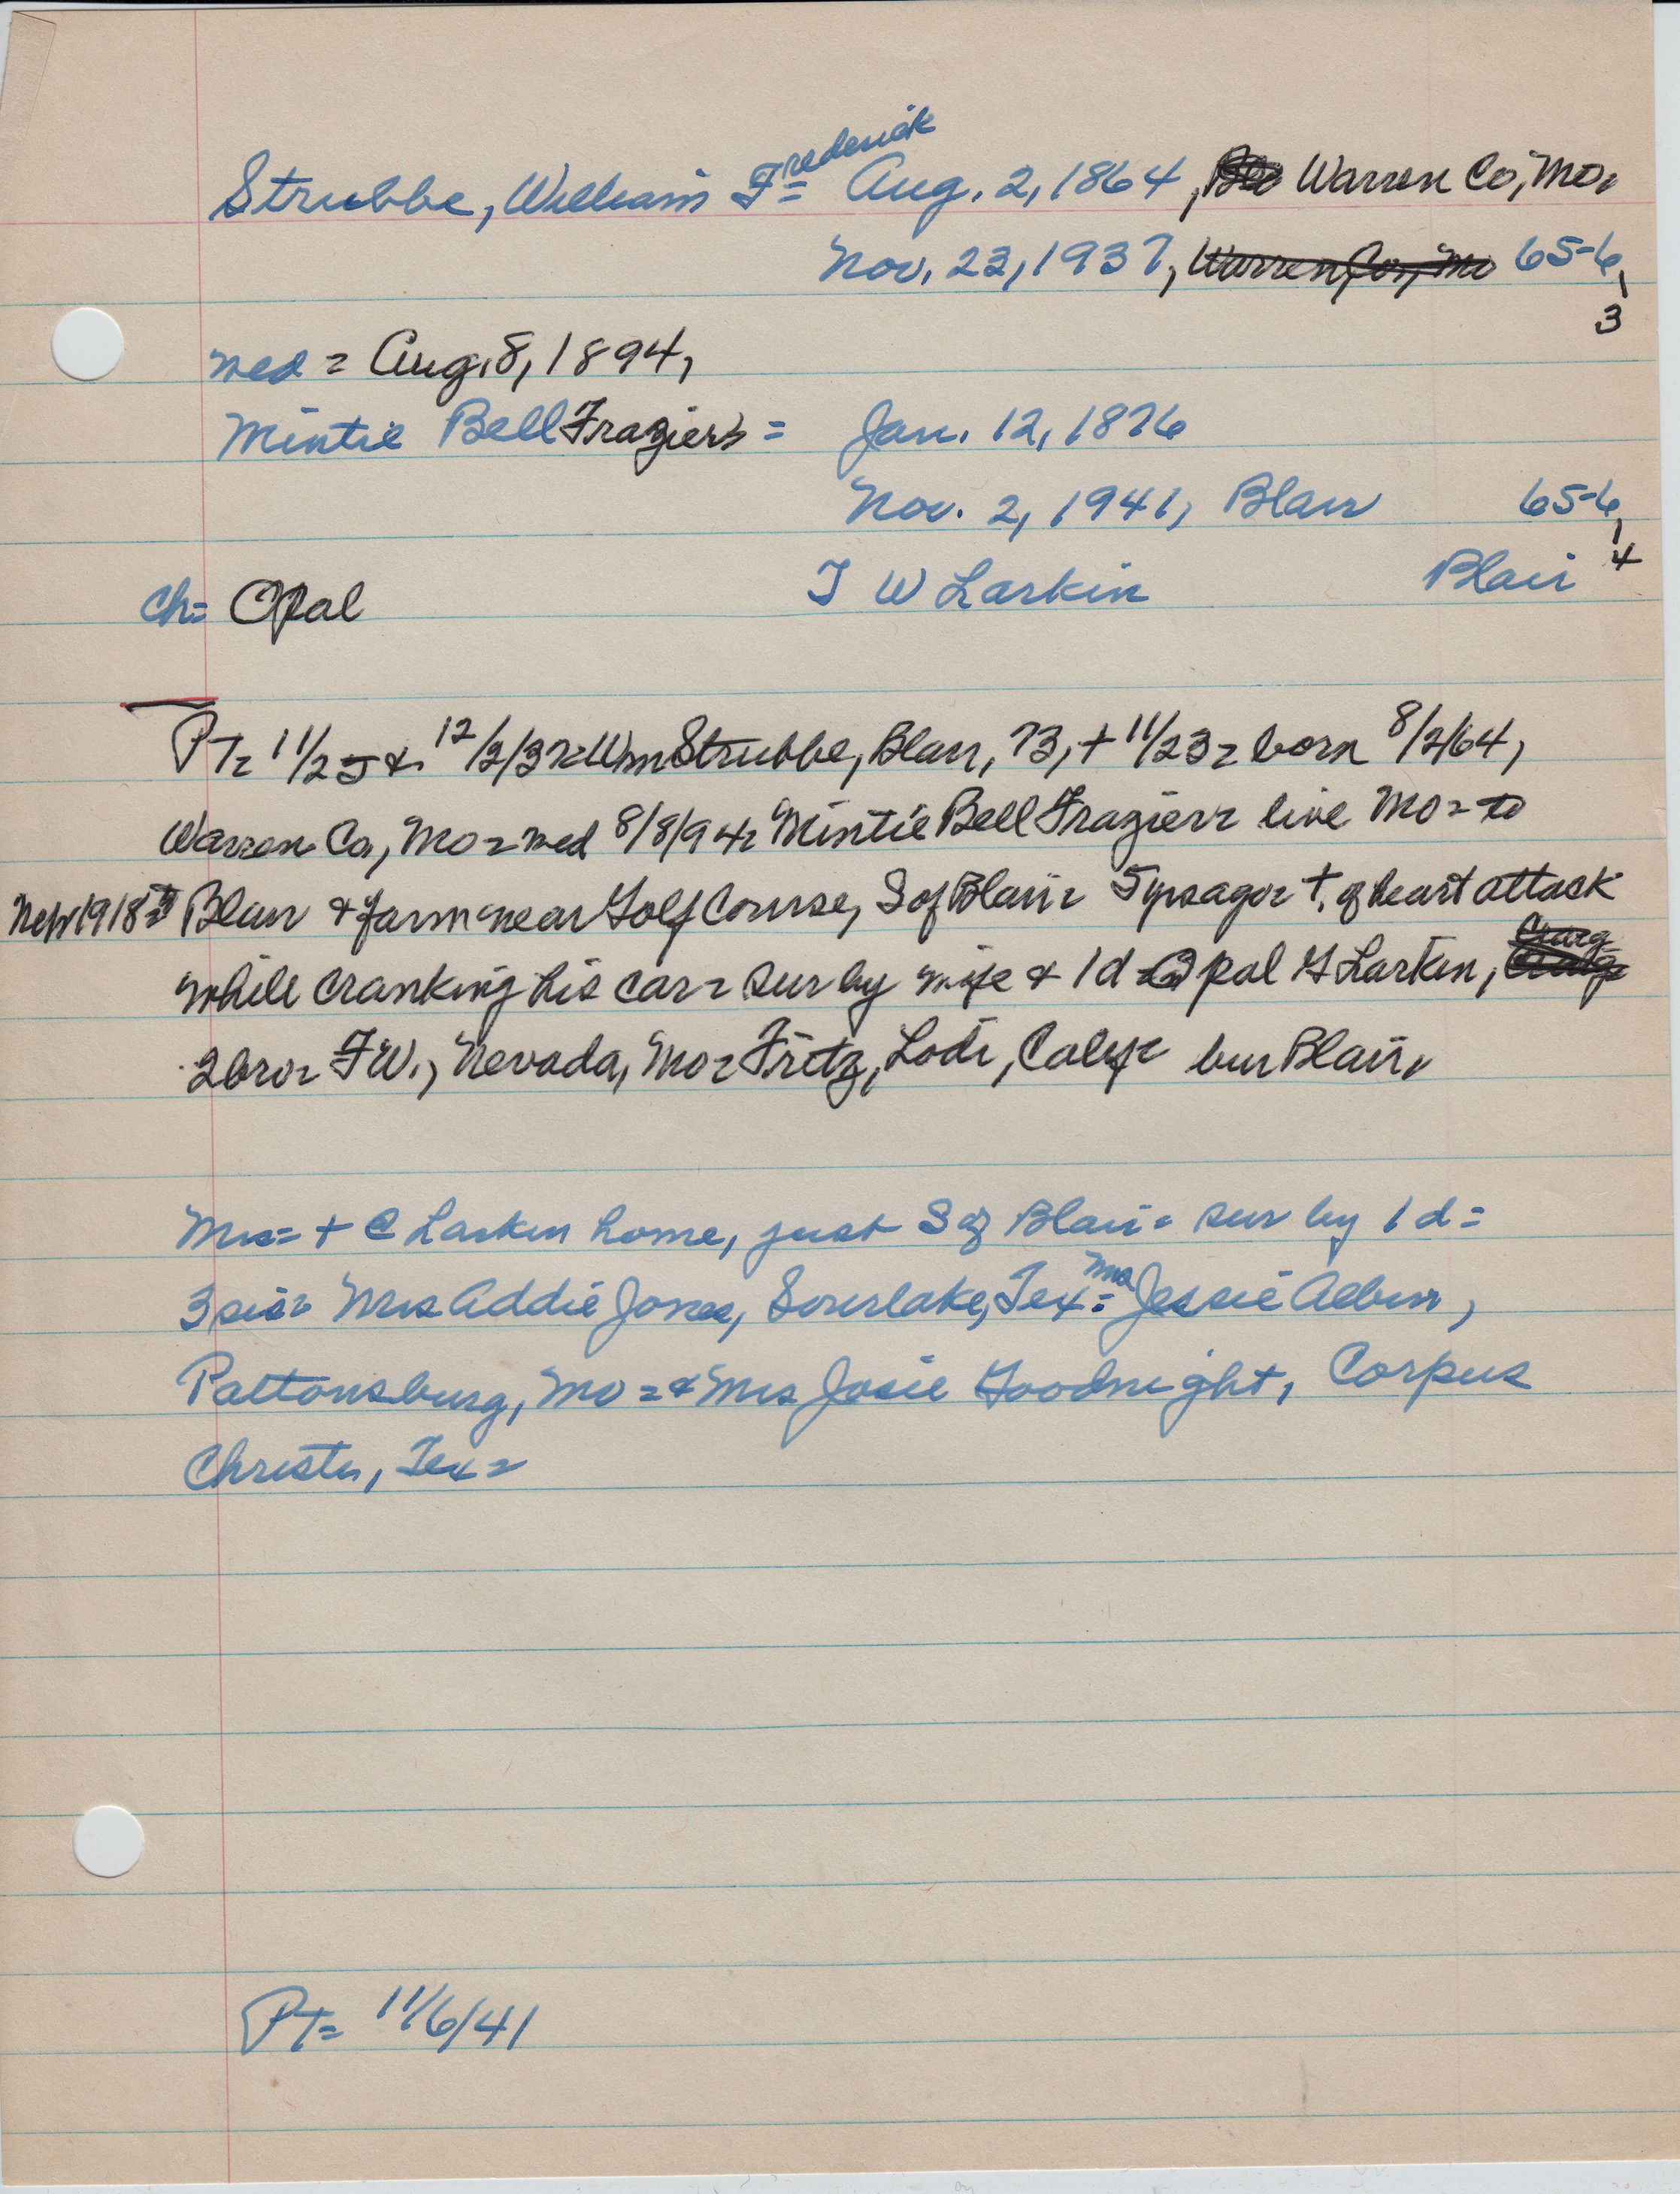 Frederick
Strubbe, William F= Aug. 2, 1864, Warren Co, Mo,
Nov. 23, 1937, Warren Co, Mo 65-6,
3
med = Aug. 8, 1894,
Mintie Bell Frazier = Jan. 12, 1876
Nov. 2, 1941, Blair 65-6,
4
T W Larkin Blair
ch= Opal
PT= 11/25 & 12/2/37= Wm Strubbe, Blair, 73, + 11/23= born 8/2/64,
Warren Co, Mo= med 8/8/94= Mintie Bell Frazier= live Mo= to
Neb 1918= Blair & farm near Golf Course, S of Blair= 5 yrs ago= +, of heart attack
while cranking his car= sur by wife & 1 d= Opal G Larkin, Craig
2 bro= F W., Nevada, Mo= Fritz, Lodi, Calif= bur Blair,
Mrs= + @ Larkin home, just S of Blair= sur by 1 d=
3 sis= Mrs Addie Jones, Sourlake, Tex= Mrs Jessie Album,
Pattonsburg, Mo= & Mrs Josie Goodnight, Corpus
Christi, Tex=
PT= 11/6/41